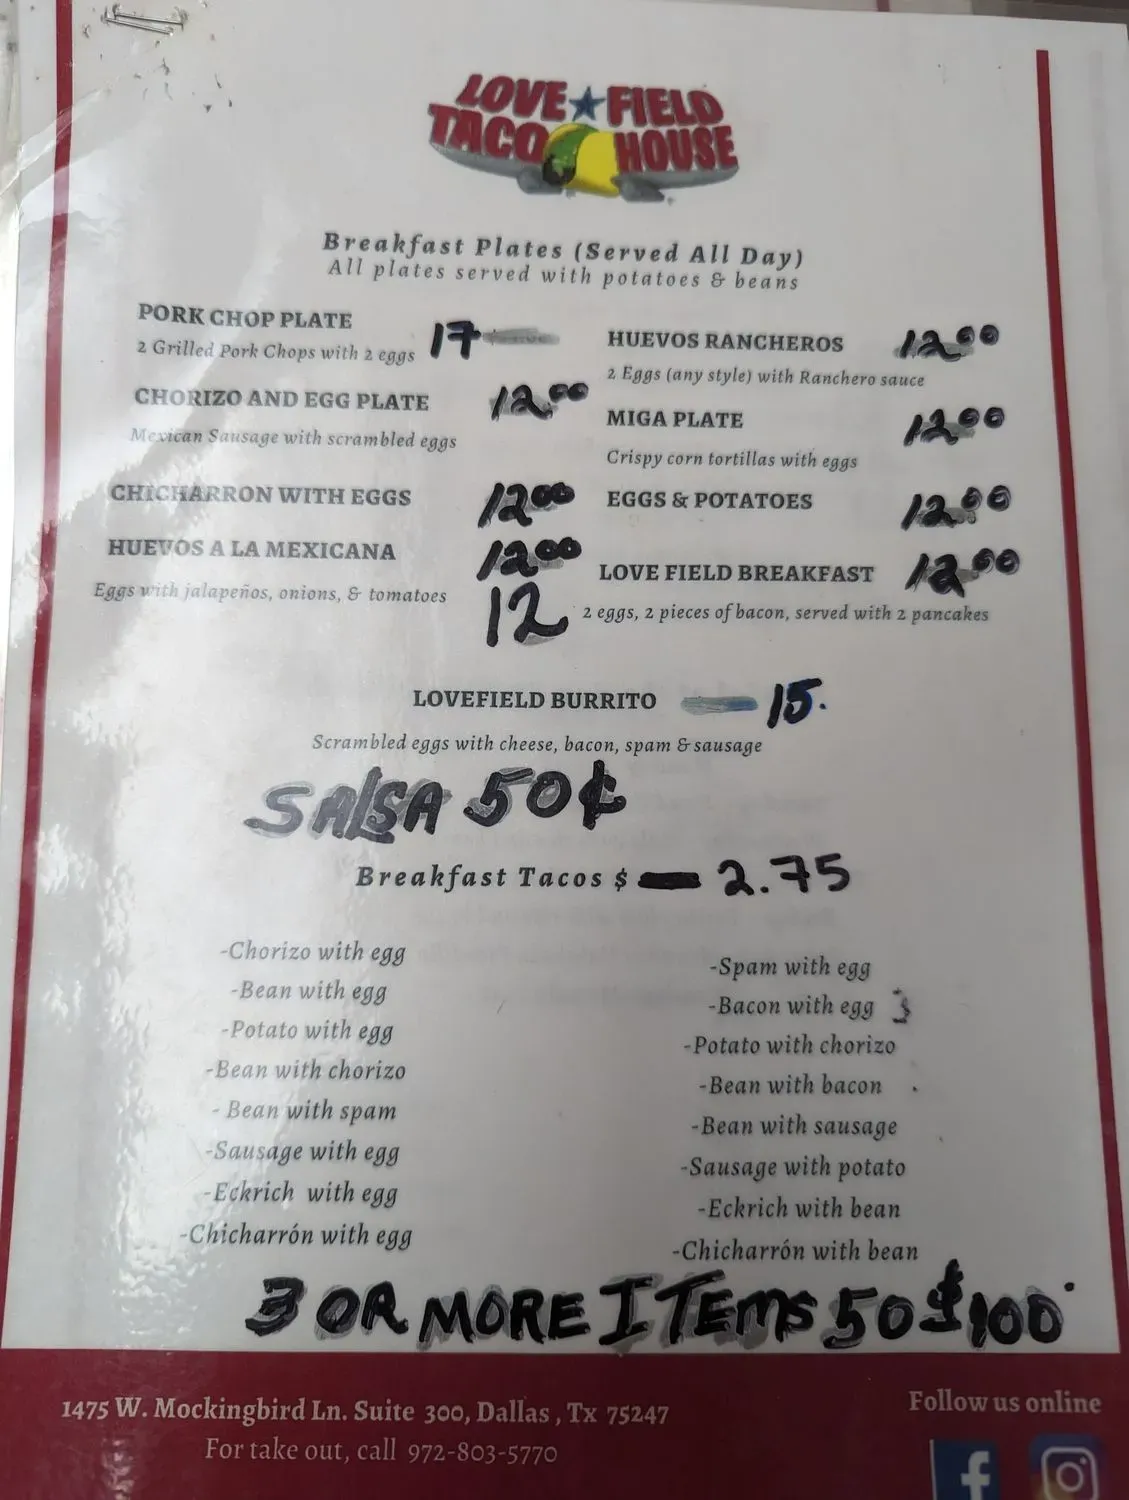 LOVE FIELD
TACO HOUSE
Breakfast Plates (Served All Day)
All plates served with potatoes & beans
PORK CHOP PLATE 17
2 Grilled Pork Chops with 2 eggs
CHORIZO AND EGG PLATE 12.00
Mexican Sausage with scrambled eggs
CHICHARRON WITH EGGS 12.00
HUEVOS A LA MEXICANA 12.00
Eggs with jalapeños, onions, & tomatoes
12
HUEVOS RANCHEROS 12.00
2 Eggs (any style) with Ranchero sauce
MIGA PLATE 12.00
Crispy corn tortillas with eggs
EGGS & POTATOES 12.00
LOVE FIELD BREAKFAST 12.00
2 eggs, 2 pieces of bacon, served with 2 pancakes
LOVEFIELD BURRITO 15.
Scrambled eggs with cheese, bacon, spam & sausage
SALSA 50¢
Breakfast Tacos $ 2.75
-Chorizo with egg
-Bean with egg
-Potato with egg
-Bean with chorizo
- Bean with spam
-Sausage with egg
-Eckrich with egg
-Chicharrón with egg
-Spam with egg
-Bacon with egg
-Potato with chorizo
-Bean with bacon
-Bean with sausage
-Sausage with potato
-Eckrich with bean
-Chicharrón with bean
3 OR MORE ITEMS 50 $100
1475 W. Mockingbird Ln. Suite 300, Dallas , Tx 75247
For take out, call 972-803-5770
Follow us online